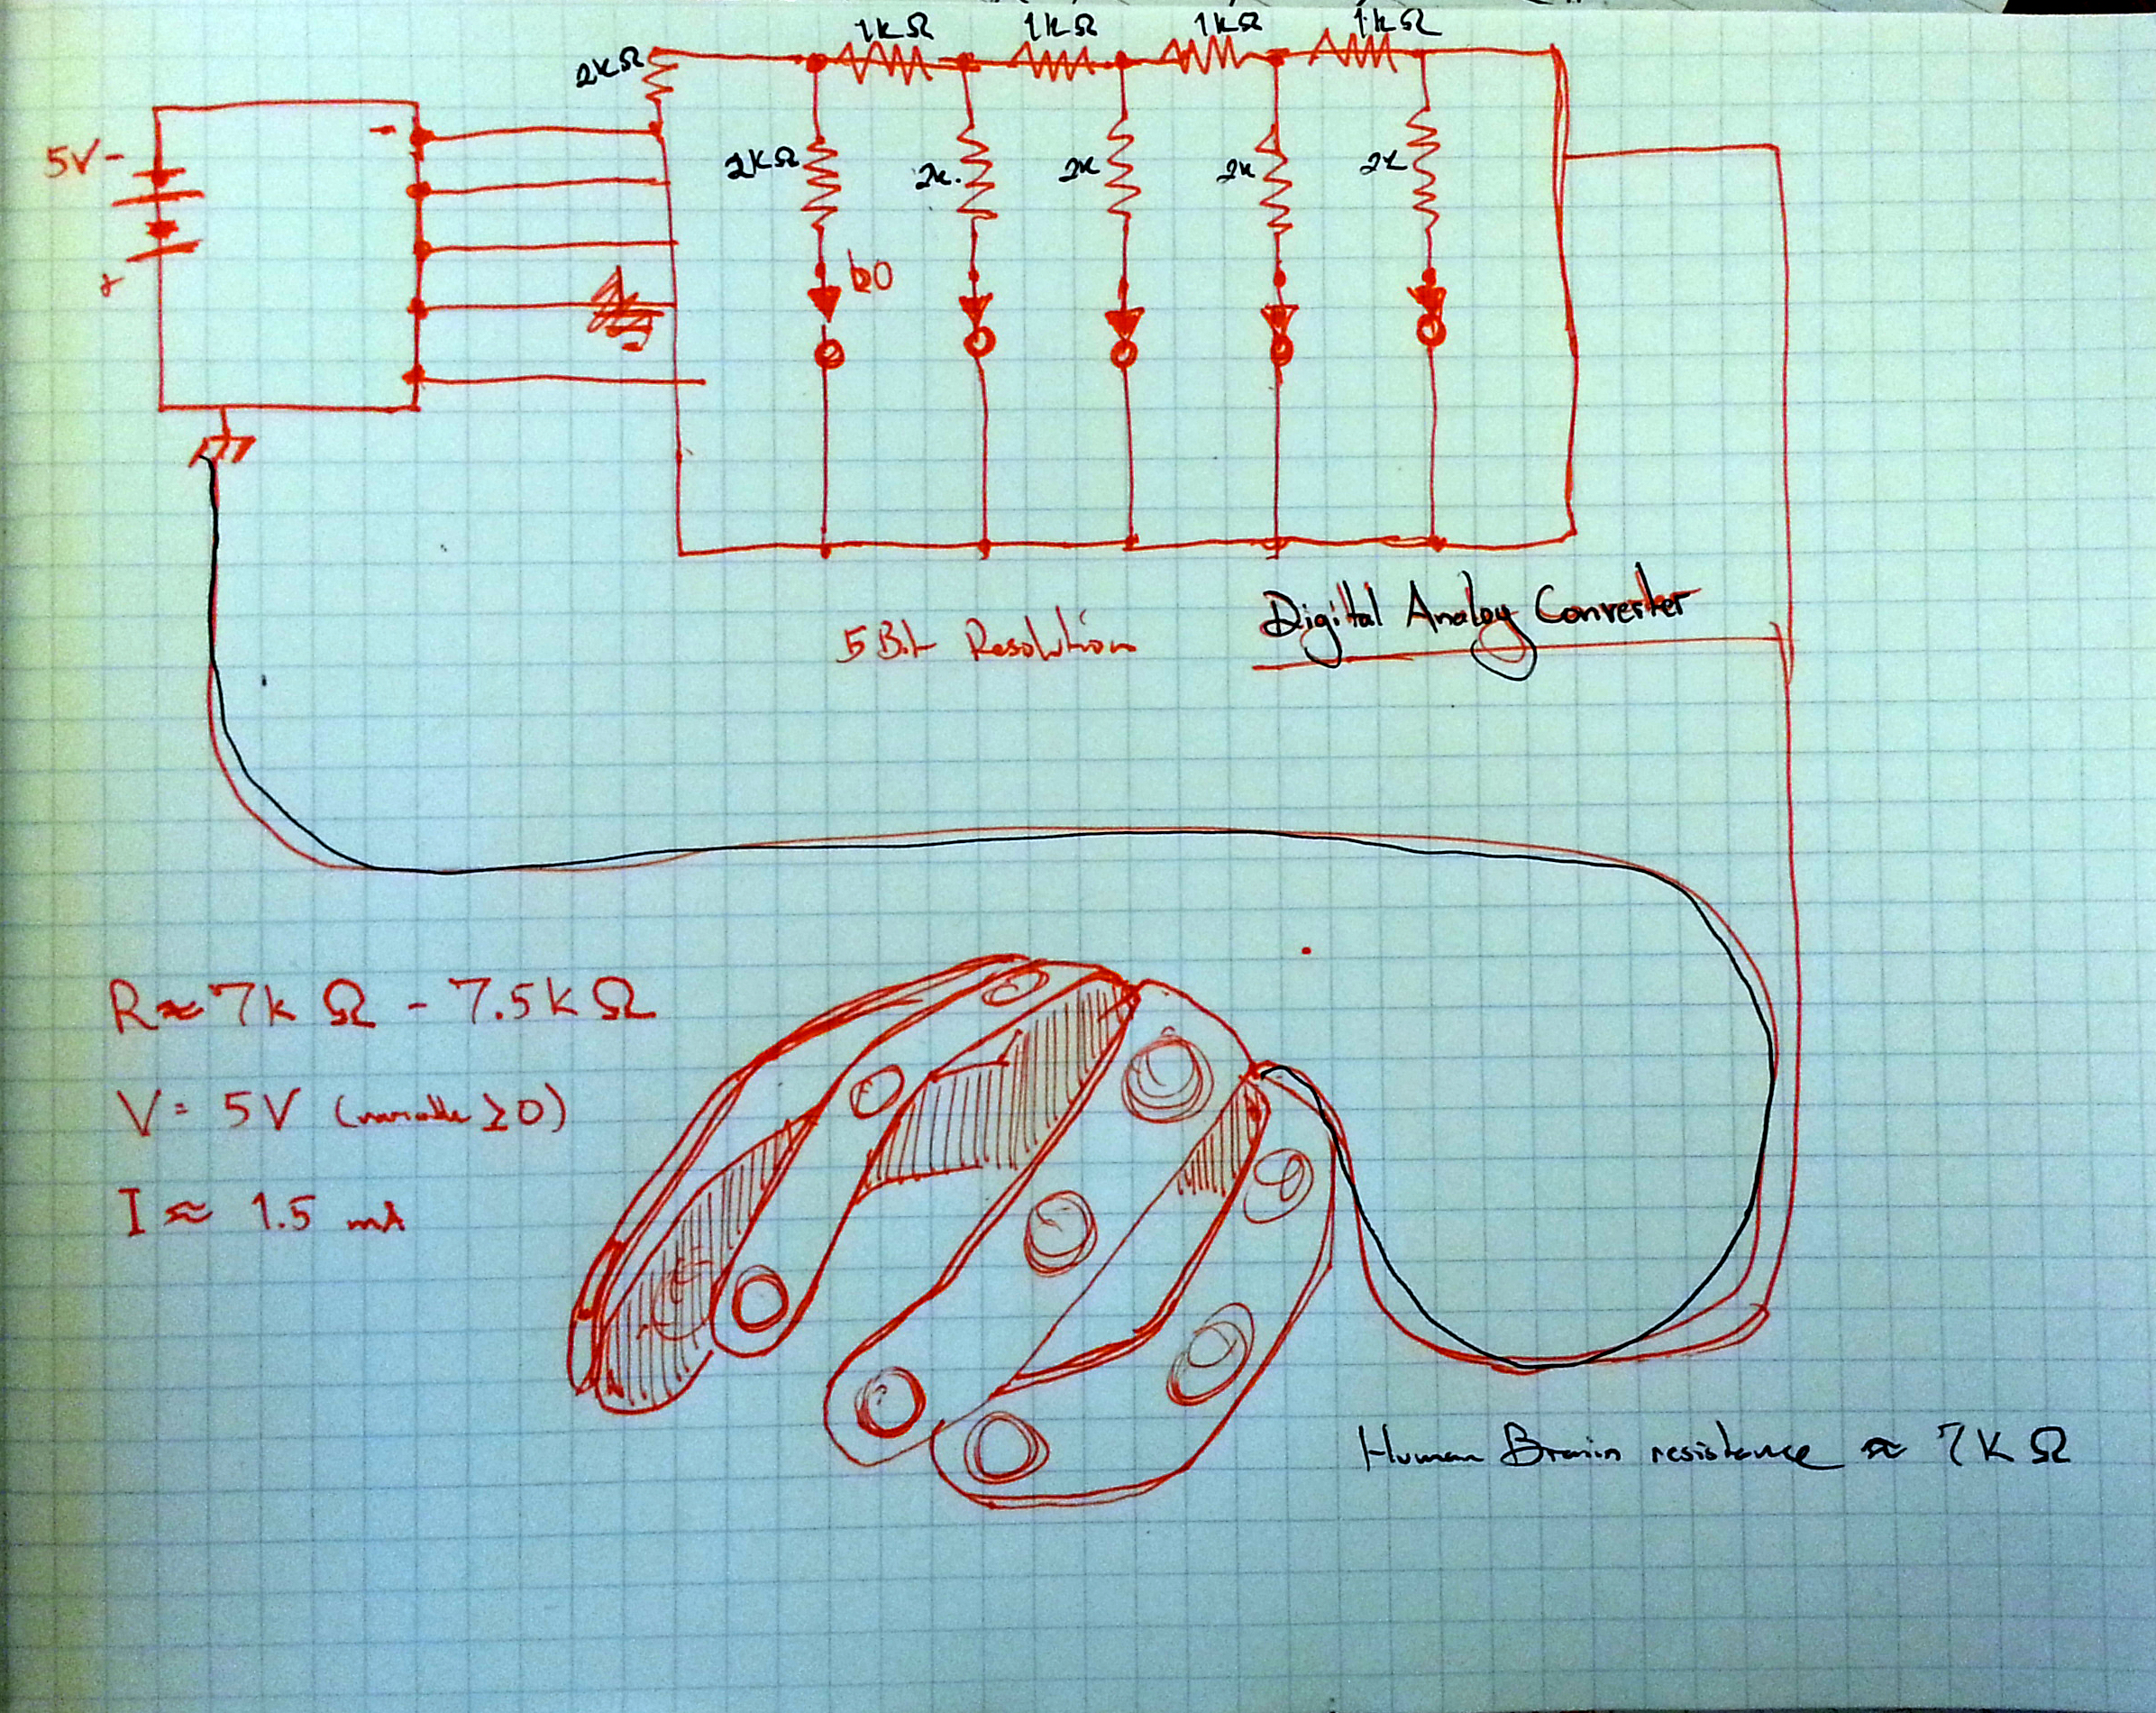 1kΩ 1kΩ 1kΩ 1kΩ
2kΩ
5V -
-
2kΩ 2k. 2k 2k 2k
b0
+
5 Bit Resolution
Digital Analog Converter
R ≈ 7k Ω - 7.5k Ω
V = 5V (variable ≥ 0)
I ≈ 1.5 mA
Human Brain resistance ≈ 7K Ω